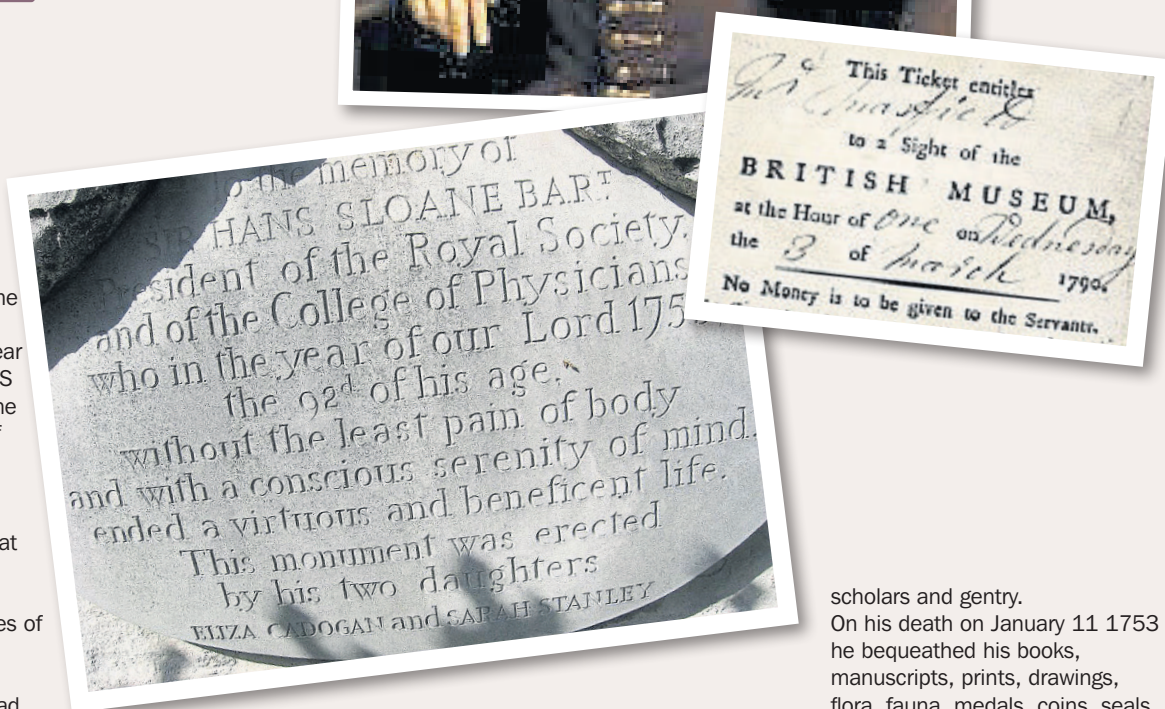 to the memory of
SIR HANS SLOANE BART
President of the Royal Society,
and of the College of Physicians
who in the year of our Lord 175
the 92d of his age,
without the least pain of body
and with a conscious serenity of mind,
ended a virtuous and beneficent life.
This monument was erected
by his two daughters
ELIZA CADOGAN and SARAH STANLEY
This Ticket entitles
to a Sight of the
BRITISH MUSEUM,
at the Hour of one on Wednesday
the 3 of March 1790.
No Money is to be given to the Servants.
ear
S
at
es of
scholars and gentry.
On his death on January 11 1753
he bequeathed his books,
manuscripts, prints, drawings,
flora, fauna, medals, coins, seals,